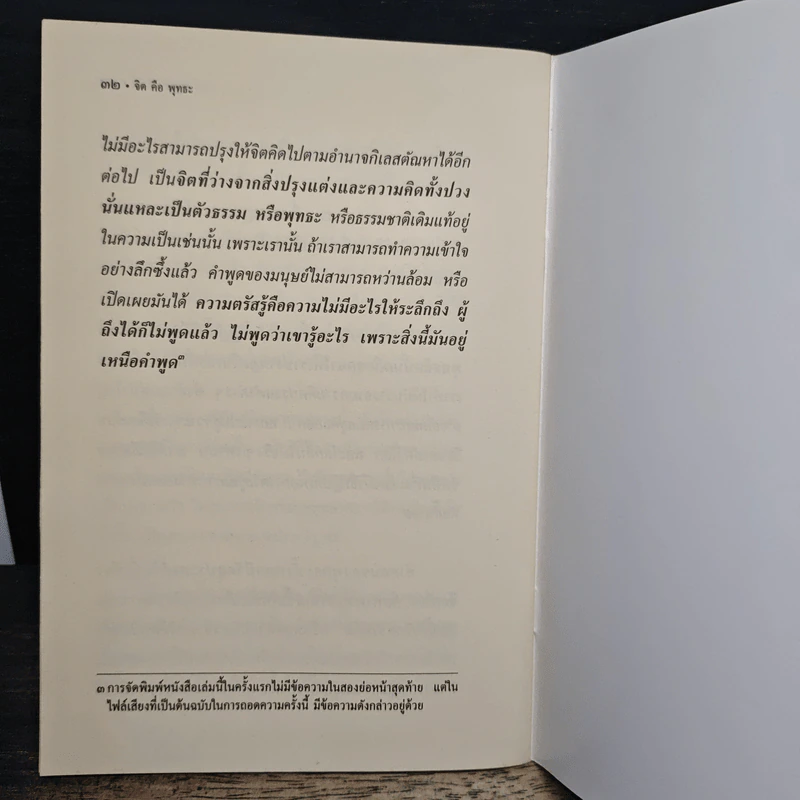 ๓๒ • จิต คือ พุทธะ
ไม่มีอะไรสามารถปรุงให้จิตคิดไปตามอำนาจกิเลสตัณหาได้อีก
ต่อไป เป็นจิตที่ว่างจากสิ่งปรุงแต่งและความคิดทั้งปวง
นั่นแหละเป็นตัวธรรม หรือพุทธะ หรือธรรมชาติเดิมแท้อยู่
ในความเป็นเช่นนั้น เพราะเรานั้น ถ้าเราสามารถทำความเข้าใจ
อย่างลึกซึ้งแล้ว คำพูดของมนุษย์ไม่สามารถหว่านล้อม หรือ
เปิดเผยมันได้ ความตรัสรู้คือความไม่มีอะไรให้ระลึกถึง ผู้
ถึงได้ก็ไม่พูดแล้ว ไม่พูดว่าเขารู้อะไร เพราะสิ่งนี้มันอยู่
เหนือคำพูด๓
๓ การจัดพิมพ์หนังสือเล่มนี้ในครั้งแรกไม่มีข้อความในสองย่อหน้าสุดท้าย แต่ใน
ไฟล์เสียงที่เป็นต้นฉบับในการถอดความครั้งนี้ มีข้อความดังกล่าวอยู่ด้วย